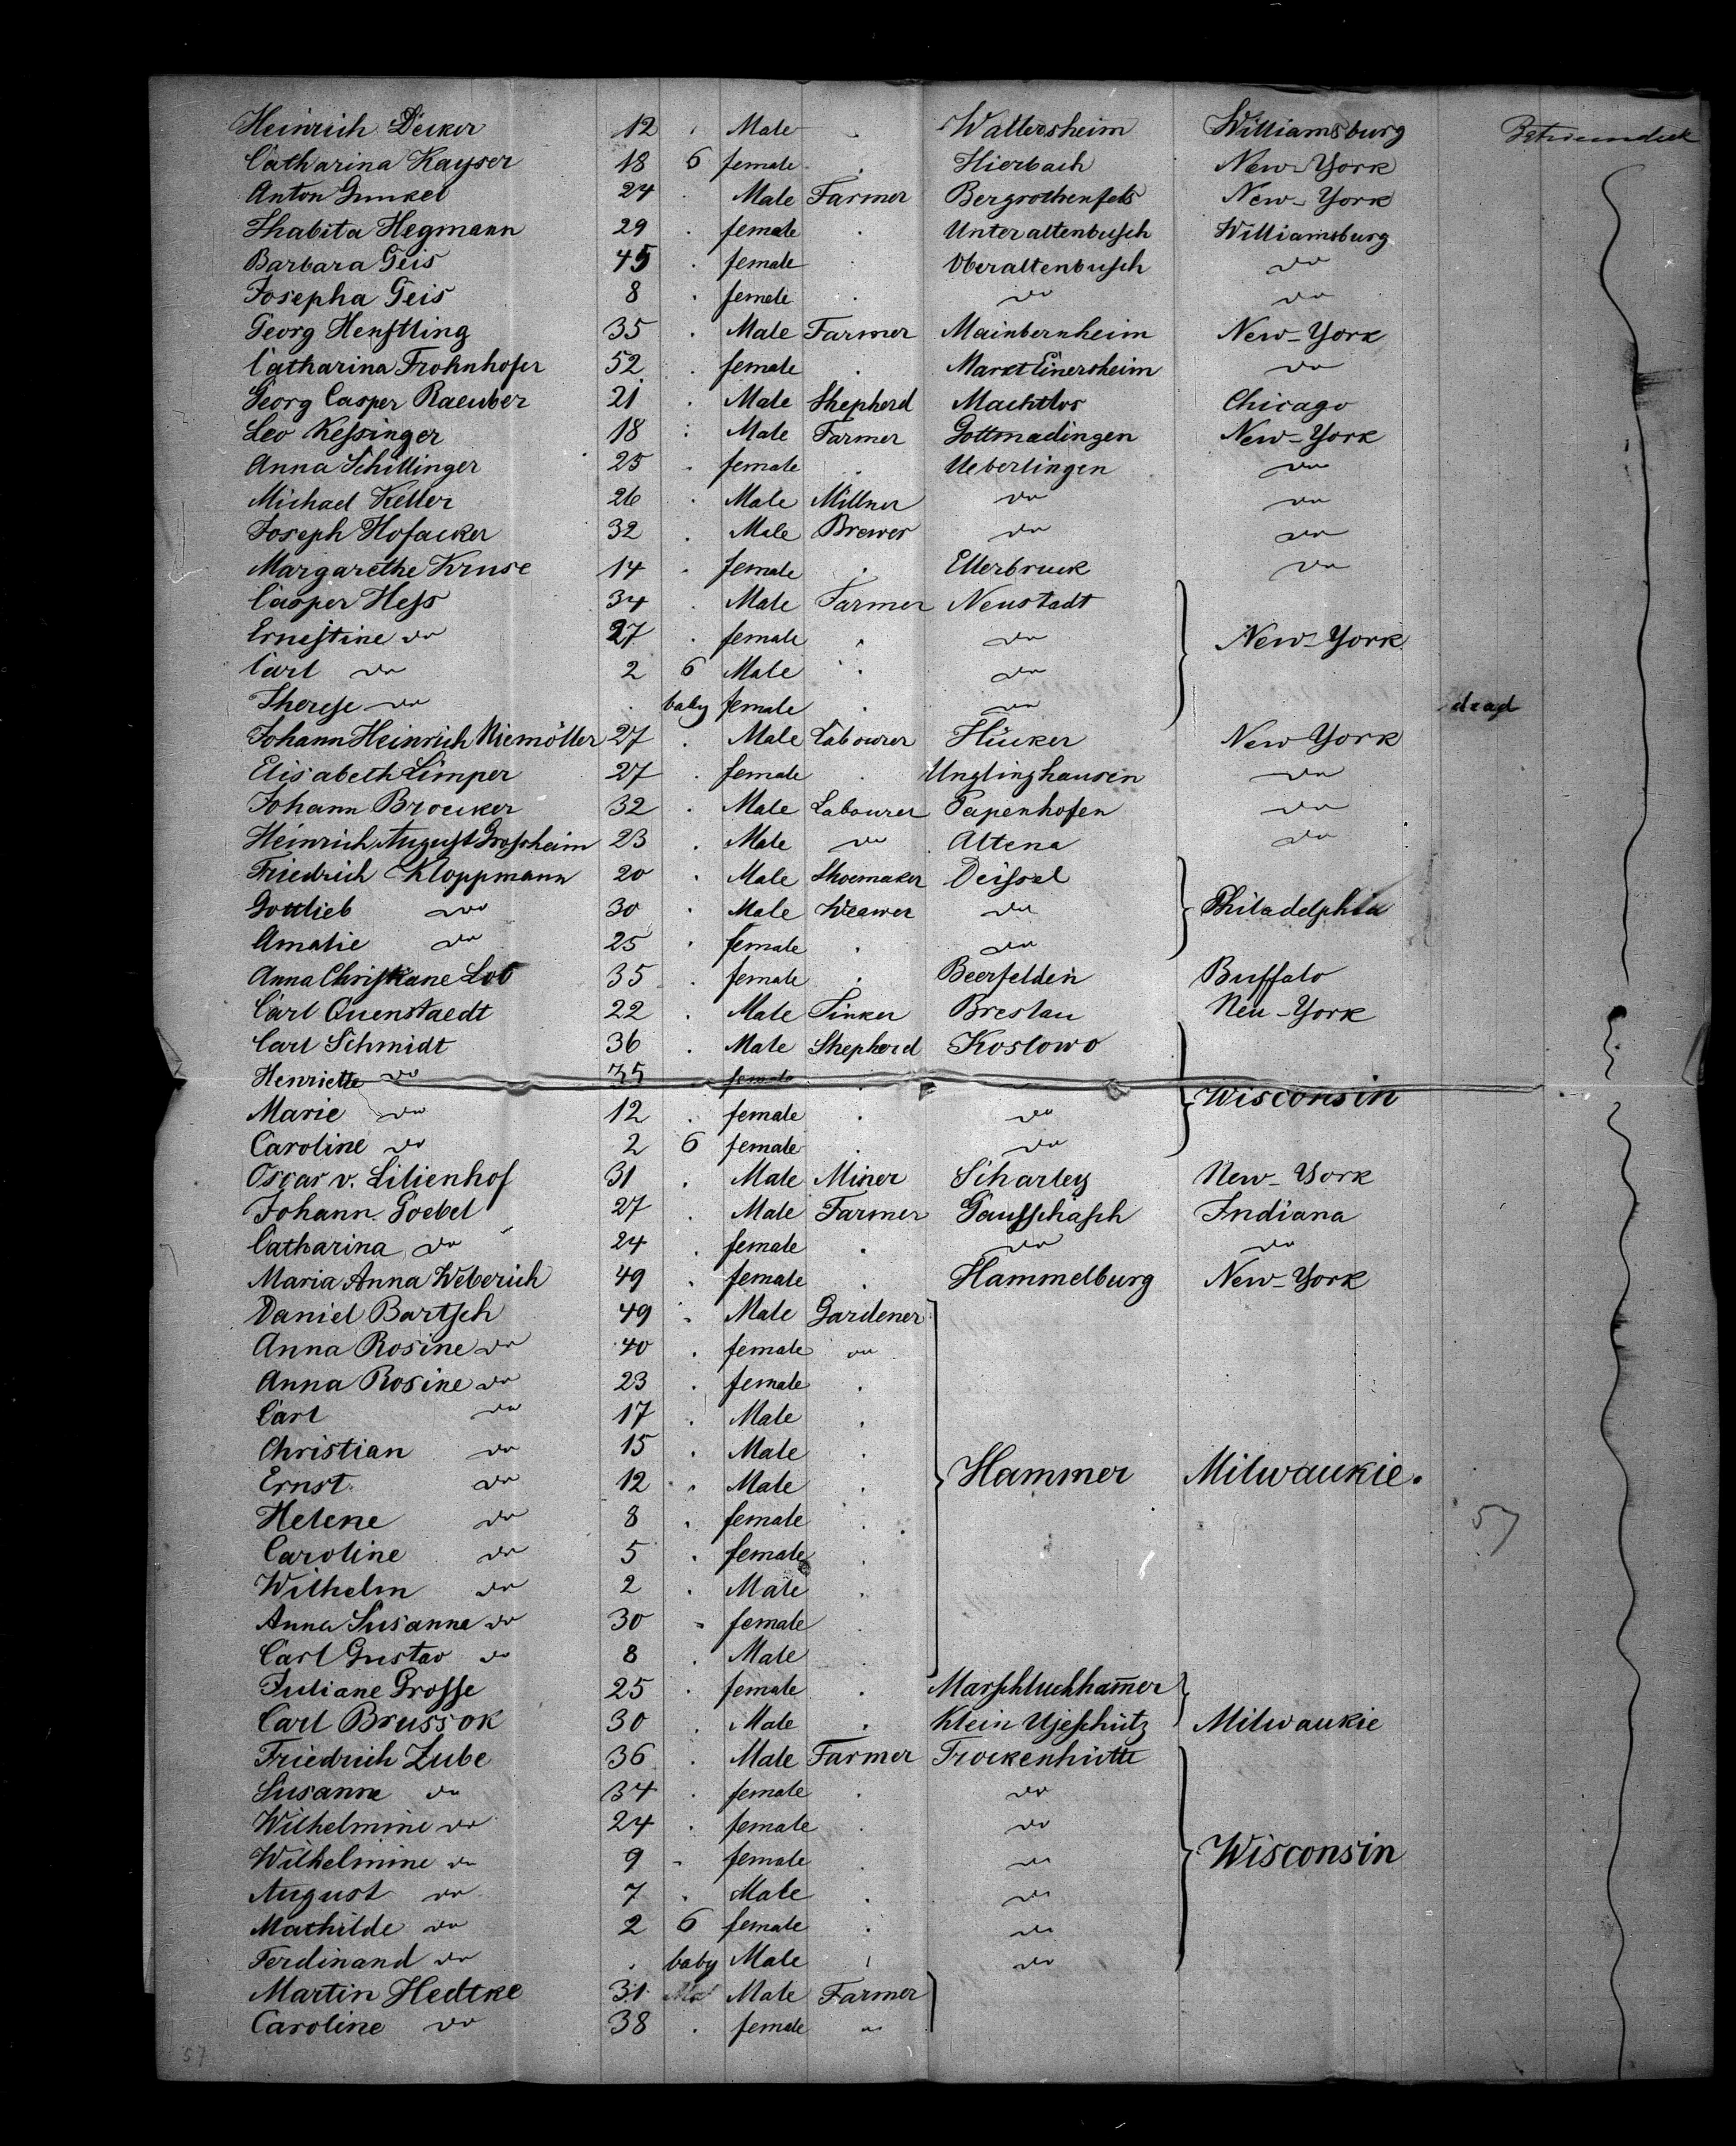 Heinrich Decker 12 Male Waltersheim Williamsburg
Catharina Kayser 18 6 female Hierbach New-York
Anton Gunkel 24 Male Farmer Bergrothenfels New-York
Thabita Hegmann 29 female Unteraltenbusch Williamsburg
Barbara Geis 45 female Oberaltenbusch do
Josepha Geis 8 female do do
Georg Henftling 35 Male Farmer Mainbernheim New-York
Catharina Frohnhofer 52 female Markt Einersheim do
Georg Casper Raeuber 21 Male Shepherd Machtlos Chicago
Leo Kessinger 18 Male Farmer Gottmadingen New-York
Anna Schillinger 25 female Ueberlingen do
Michael Keller 26 Male Millner do do
Joseph Hofacker 32 Male Brewer do do
Margarethe Kruse 14 female Ellerbruck do
Casper Hess 34 Male Farmer Neustadt
Ernestine do 27 female do New-York
Carl do 2 6 Male do
Therese do baby female do dead
Johann Heinrich Niemöller 27 Male Labourer Hücker New-York
Elisabeth Limper 27 female Unglinghausen do
Johann Broecker 32 Male Labourer Papenhofen do
Heinrich August Grossheim 23 Male do Altena do
Friedrich Kloppmann 20 Male Shoemaker Deissel
Gottlieb do 30 Male Weawer do Philadelphia
Amalie do 25 female do
Anna Christiane Lob 35 female Beerfelden Buffalo
Carl Quenstaedt 22 Male Tinker Breslau New-York
Carl Schmidt 36 Male Shepherd Koslowo
Henriette do 35 female
Marie do 12 female do Wisconsin
Caroline do 2 6 female do
Oscar v. Lilienhof 31 Male Miner Scharley New-York
Johann Goebel 27 Male Farmer Indiana
Catharina do 24 female do do
Maria Anna Weberich 49 female Hammelburg New-York
Daniel Bartsch 49 Male Gardener
Anna Rosine do 40 female do
Anna Rosine do 23 female
Carl do 17 Male
Christian do 15 Male
Ernst do 12 Male Hammer Milwaukie.
Helene do 8 female 57
Caroline do 5 female
Wilhelm do 2 Male
Anna Susanne do 30 female
Carl Gustav do 8 Male
Juliane Grosse 25 female Marschluchham̄er
Carl Brussok 30 Male Klein Ujeschütz Milwaukie
Friedrich Zube 36 Male Farmer Trockenhütte
Susanne do 34 female do
Wilhelmine do 24 female do
Wilhelmine do 9 female do Wisconsin
August do 7 Male do
Mathilde do 2 6 female do
Ferdinand do baby Male do
Martin Hedtke 31 Male Farmer
Caroline do 38 female do
57